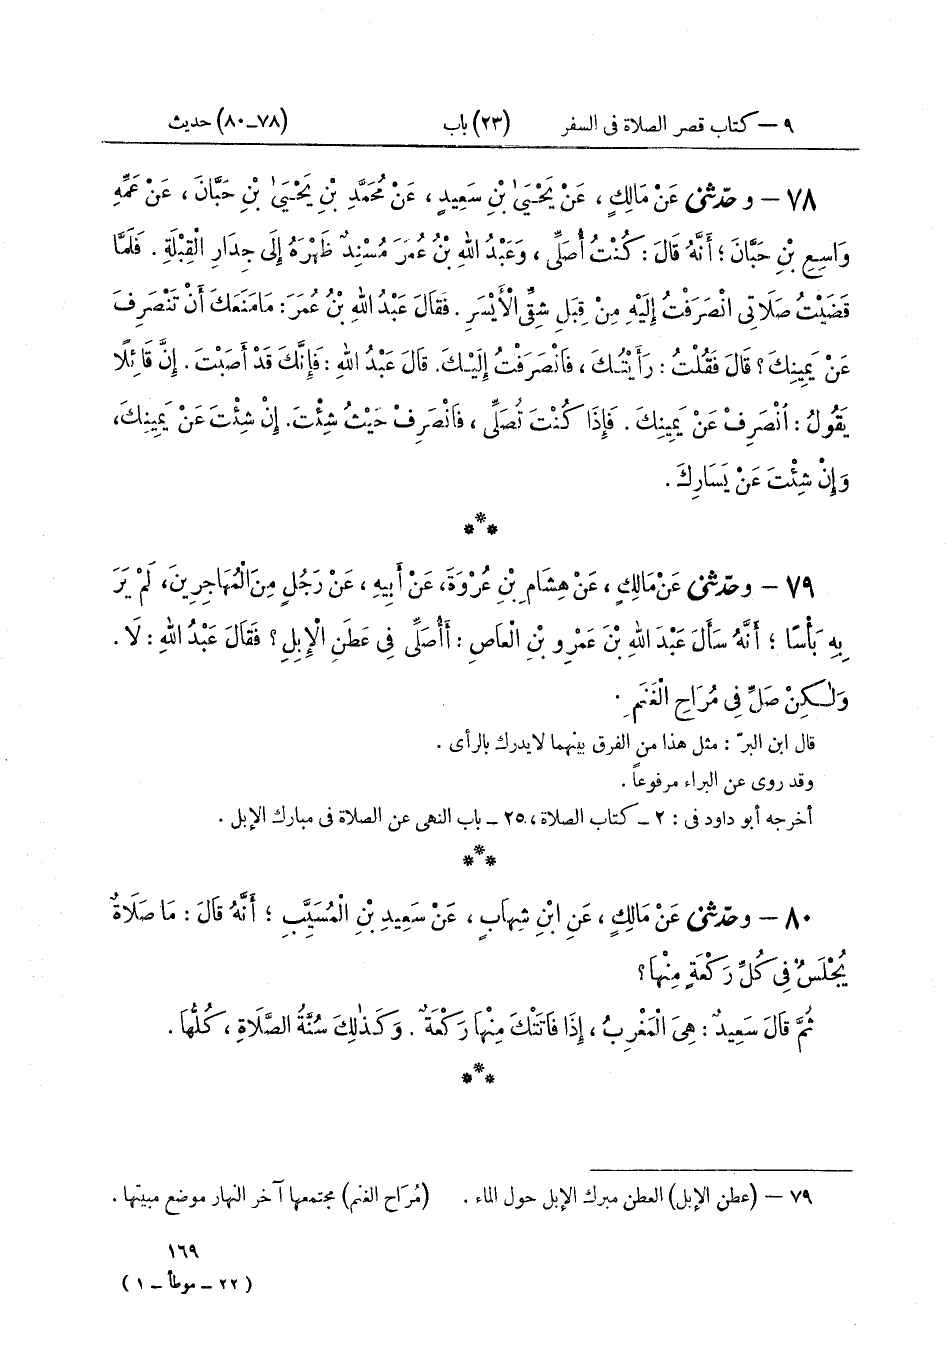 ٩ – كتاب قصر الصلاة فى السفر (٢٣) باب (٧٨ـ٨٠) حديث
٧٨ – وحدّثنى عَنْ مَالِكٍ ، عَنْ يَحْيَىٰ بْنِ سَعِيدٍ ، عَنْ مُحَمَّدِ بْنِ يَحْيَىٰ بْنِ حَبَّانَ ، عَنْ عَمِّهِ
وَاسِعِ بْنِ حَبَّانَ ؛ أَنَّهُ قَالَ : كُنْتُ أُصَلِّى ، وَعَبْدُ اللهِ بْنُ عُمَرَ مُسْنِدٌ ظَهْرَهُ إِلَى جِدَارِ الْقِبْلَةِ . فَلَمَّا
قَضَيْتُ صَلَاتِى انْصَرَفْتُ إِلَيْهِ مِنْ قِبَلِ شِقِّىَ الْأَيْسَرِ . فَقَالَ عَبْدُ اللهِ بْنُ عُمَرَ : مَامَنَعَكَ أَنْ تَنْصَرِفَ
عَنْ يَمِينِكَ ؟ قَالَ فَقُلْتُ : رَأَيْتُكَ ، فَانْصَرَفْتُ إِلَيْكَ. قَالَ عَبْدُ اللهِ : فَإِنَّكَ قَدْ أَصَبْتَ . إِنَّ قَائِلًا
يَقُولُ : انْصَرِفْ عَنْ يَمِينِكَ . فَإِذَا كُنْتَ تُصَلِّى ، فَانْصَرِفْ حَيْثُ شِئْتَ. إِنْ شِئْتَ عَنْ يَمِينِكَ،
وَإِنْ شِئْتَ عَنْ يَسَارِكَ .
***
٧٩ – وحدّثنى عَنْ مَالِكٍ ، عَنْ هِشَامِ بْنِ عُرْوَةَ، عَنْ أَبِيهِ ، عَنْ رَجُلٍ مِنَ الْمُهَاجِرِينَ، لَمْ يَرَ
بِهِ بَأْسًا ؛ أَنَّهُ سَأَلَ عَبْدَ اللهِ بْنَ عَمْرِو بْنِ الْعَاصِ : أَأُصَلِّى فِى عَطَنِ الْإِبِلِ ؟ فَقَالَ عَبْدُ اللهِ : لَا .
وَلٰكِنْ صَلِّ فِى مُرَاحِ الْغَنَمِ .
قال ابن البرّ : مثل هذا من الفرق بينهما لايدرك بالرأى .
وقد روى عن البراء مرفوعاً .
أخرجه أبو داود فى : ٢ ـ كتاب الصلاة ، ٢٥ ـ باب النهى عن الصلاة فى مبارك الإبل .
***
٨٠ – وحدّثنى عَنْ مَالِكٍ ، عَنِ ابْنِ شِهَابٍ ، عَنْ سَعِيدِ بْنِ الْمُسَيَّبِ ؛ أَنَّهُ قَالَ : مَا صَلَاةٌ
يُجْلَسُ فِى كُلِّ رَكْعَةٍ مِنْهَا ؟
ثُمَّ قَالَ سَعِيدٌ : هِىَ الْمَغْرِبُ ، إِذَا فَاتَتْكَ مِنْهَا رَكْعَةٌ . وَكَذٰلِكَ سُنَّةُ الصَّلَاةِ ، كُلُّهَا .
***
٧٩ – (عطن الإبل) العطن مبرك الإبل حول الماء . (مُرَاح الغنم) مجتمعها آخر النهار موضع مبيتها .
١٦٩
( ٢٢ ـ موطأ ـ ١ )